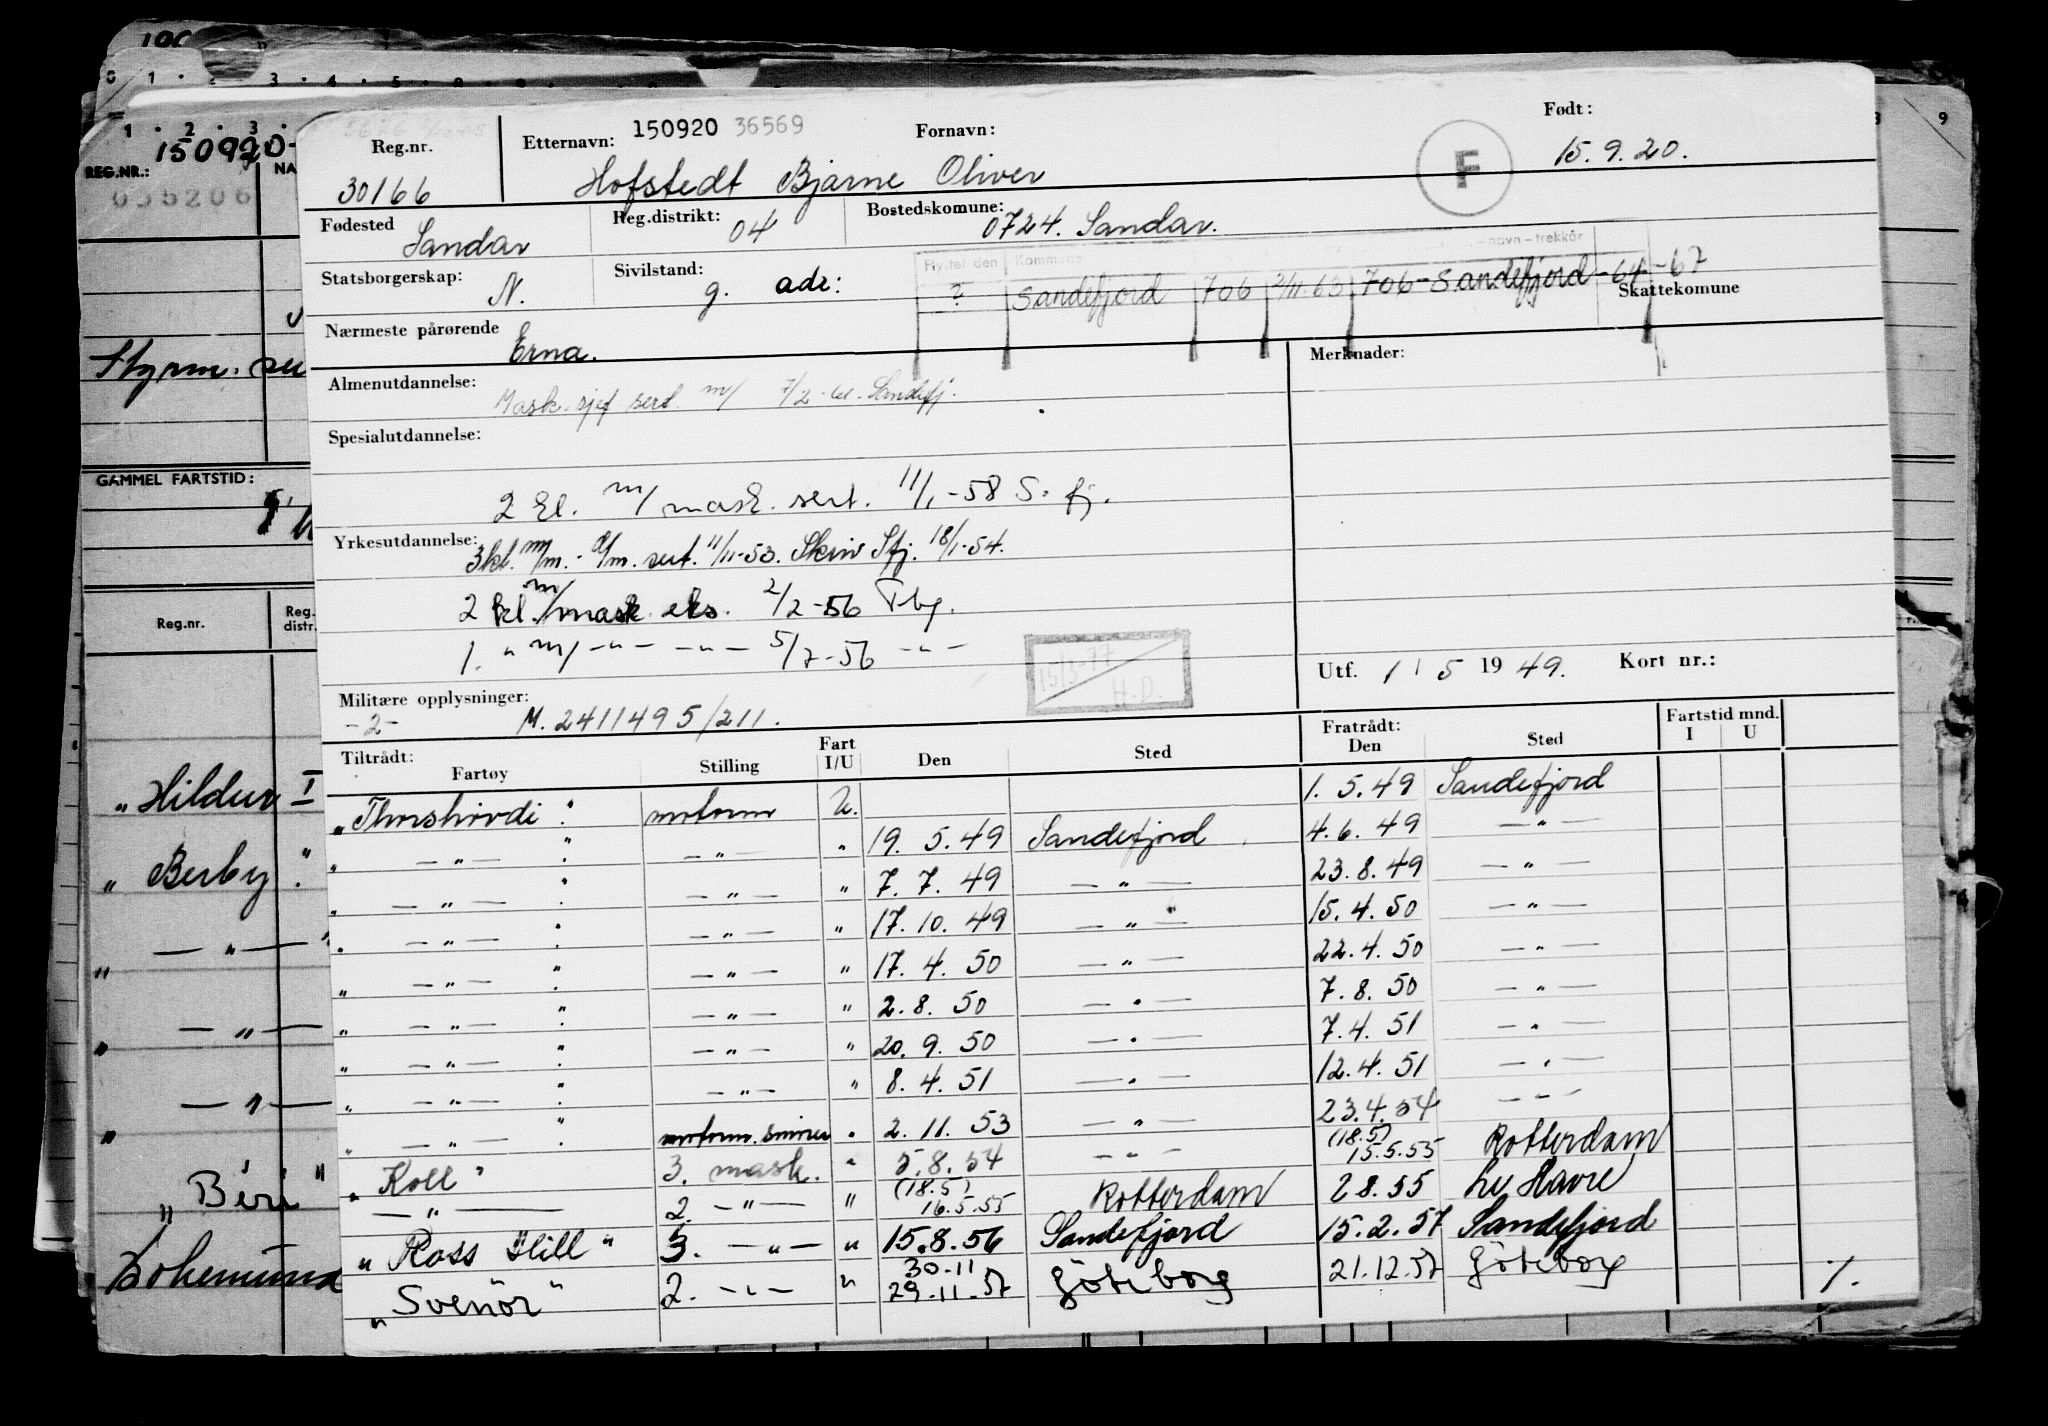 0 1 2 3 4 5
9
1 · 2 · 3
REG.NR.: 150920- NA
055206
Styrm.
GAMMEL FARTSTID:
Reg.nr. Reg. distr.
"Hildur I
" Berby "
" — " — "
" — " —
" — " —
"Béri"
Bohemund
Reg.nr. 30166
Etternavn: 150920 36569 Fornavn: Født:
Hofstedt Bjarne Oliver F 15.9.20.
Fødested Sandar Reg.distrikt: 04 Bostedskomune: 0724. Sandar.
Flyttet den Kommune -navn-trekkår
Statsborgerskap: N. Sivilstand: g. adr: ? Sandefjord 706 2/11.63 706-Sandefjord-64-67
Skattekomune
Nærmeste pårørende Erna.
Merknader:
Almenutdannelse: Mask.sjef sert. m/ 7/2-61. Sandefj.
Spesialutdannelse:
2 kl. m/ mask. sert. 11/1-58 S.fj.
Yrkesutdannelse: 3kl. m/m.- d/m. sert. 11/11-53. Skriv Sfj. 18/1-54.
2 kl. m/mask. eks. 2/2-56 Tbg.
1. " m/ -"- -"- 5/7-56 -"-
15/3-77
H.D.
Utf. 1 / 5 1949. Kort nr.:
Militære opplysninger:
-2- M. 2411495/211.
Tiltrådt: Fratrådt: Fartstid mnd.
Fartøy Stilling Fart I/U Den Sted Den Sted I U
"Thorshövdi" motorm U. 1. 5.49 Sandefjord
" — " — " — " — " 19. 5.49 Sandefjord 4.6. 49 — " —
" — " — " — " — " 7. 7. 49 — " — 23.8.49 — " —
" — " — " — " — " 17. 10. 49 — " — 15. 4. 50 — " —
" — " — " — " — " 17. 4. 50 — " — 22.4.50 — " —
" — " — " — " — " 2.8. 50 — " — 7. 8. 50 — " —
" — " — " — " — " 20. 9. 50 — " — 7. 4. 51 — " —
" — " — " — " — " 8. 4. 51 — " — 12. 4. 51 — " —
" — " — " motorm. smörer " 2. 11. 53 — " — 23.4.54 — " —
"Koll" 3. mask. " 5.8.54 — " — (18.5) 15.5.55 Rotterdam
— " — 2. — " — " (18.5) 16.5.55 Rotterdam 28.55 Le Havre
"Ross Hill" 3. — " — " 15.8.56 Sandefjord 15.2.57 Sandefjord
"Svenör" 2. — " — " 30-11 29.11.57 Göteborg 21.12.57 Göteborg
%.